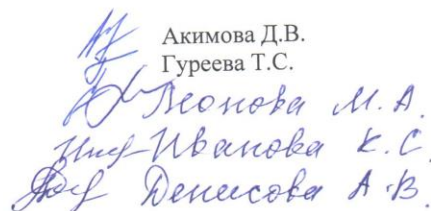 Акимова Д.В.
Гуреева Т.С.
Леонова М.А.
Иванова К.С.
Денисова А.В.